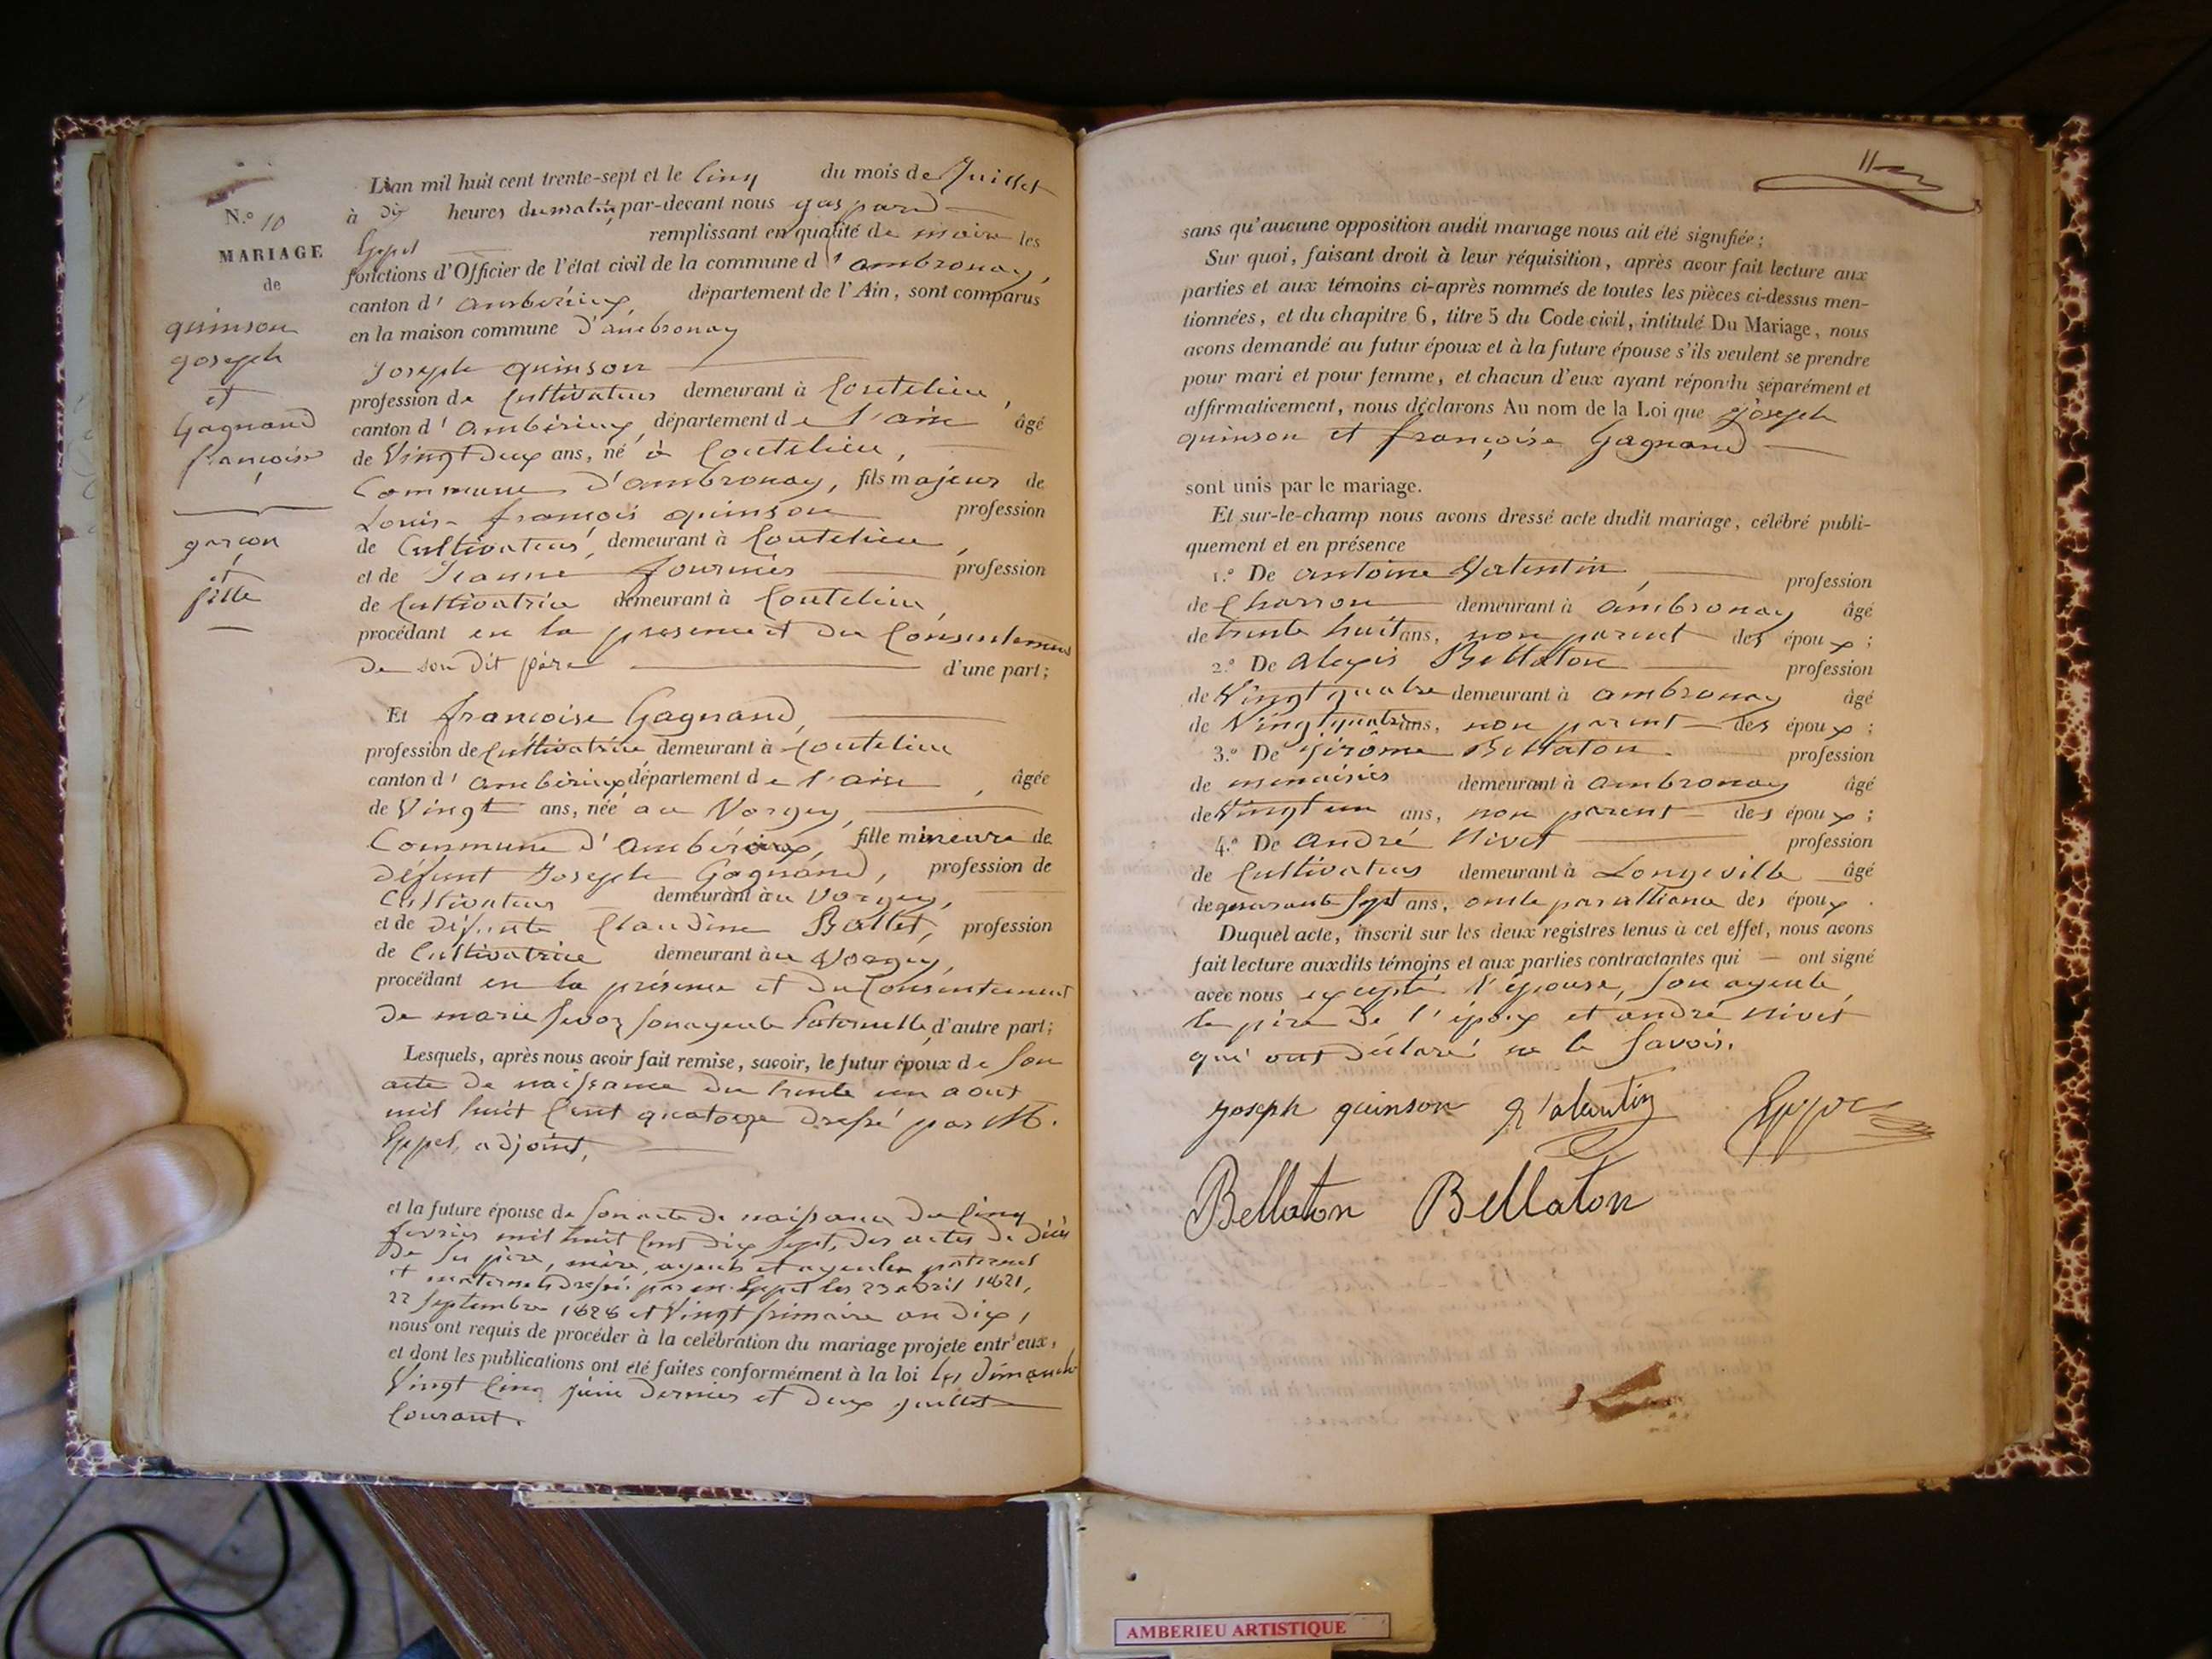 N.º 10
MARIAGE
de
quinson
joseph
et
Gagnand
françoise
garçon
et
fille
L'an mil huit cent trente-sept et le Cinq du mois de Juillet
à dix heures du matin, par-devant nous gaspard
Eppel remplissant en qualité de maire les
fonctions d'Officier de l'état civil de la commune d'ambronay,
canton d'ambérieux, département de l'Ain, sont comparus
en la maison commune d'ambronay
Joseph quinson
profession de Cultivateur demeurant à Coutelieu,
canton d'ambérieux, département de l'ain âgé
de Vingt deux ans, né à Coutelieu,
Commune d'ambronay, fils majeur de
Louis-françois quinson profession
de Cultivateur, demeurant à Coutelieu,
et de Jeanne fournier profession
de Cultivatrice demeurant à Coutelieu,
procédant en la presence et du Consentement
de son dit père d'une part;
Et françoise Gagnand,
profession de Cultivatrice demeurant à Coutelieu
canton d'ambérieux département de l'ain, âgée
de Vingt ans, née au Vorgey,
Commune d'ambérieux, fille mineure de
défunt Joseph Gagnand, profession de
Cultivateur demeurant au Vorgey,
et de défunte Claudine Ballet, profession
de Cultivatrice demeurant au Vorgey,
procédant en la présence et du Consentement
de marie son ayeule Paternelle, d'autre part;
Lesquels, après nous avoir fait remise, savoir, le futur époux de son
acte de naissance du trente un aout
mil huit Cent quatorze dressé par M.
Eppel, adjoint,
et la future épouse de son acte de naissance du Cinq
fevrier mil huit Cent dix sept, des actes de décès
de ses père, mère, ayeuls et ayeules paternel
et maternels dressés par m. Eppel les 23 abril 1821,
22 septembre 1828 et Vingt frimaire an dix,
nous ont requis de procéder à la celébration du mariage projeté entr'eux,
et dont les publications ont été faites conformément à la loi les dimanche
Vingt Cinq juin dernier et deux juillet
Courant.
11
sans qu'aucune opposition audit mariage nous ait été signifiée;
Sur quoi, faisant droit à leur réquisition, après avoir fait lecture aux
parties et aux témoins ci-après nommés de toutes les pièces ci-dessus men-
tionnées, et du chapitre 6, titre 5 du Code civil, intitulé Du Mariage, nous
avons demandé au futur époux et à la future épouse s'ils veulent se prendre
pour mari et pour femme, et chacun d'eux ayant répondu séparément et
affirmativement, nous déclarons Au nom de la Loi que joseph
quinson et françoise Gagnand
sont unis par le mariage.
Et sur-le-champ nous avons dressé acte dudit mariage, célébré publi-
quement et en présence
1.º De antoine Valentin, profession
de Charron demeurant à ambronay âgé
de trente huit ans, non parent des époux;
2.º De alexis Bellaton profession
de Vingt quatre demeurant à ambronay âgé
de Vingt quatre ans, non parent des époux;
3.º De jérôme Bellaton profession
de menuisier demeurant à ambronay âgé
de Vingt un ans, non parent des époux;
4.º De andré Nivet profession
de Cultivateur demeurant à Longeville âgé
de quarante sept ans, oncle par alliance des époux.
Duquel acte, inscrit sur les deux registres tenus à cet effet, nous avons
fait lecture auxdits témoins et aux parties contractantes qui ont signé
avec nous excepté l'épouse, son ayeule,
le père de l'époux et andré nivet
qui ont déclaré ne le savoir.
joseph quinson Valentin Eppel
Bellaton Bellaton
AMBERIEU ARTISTIQUE